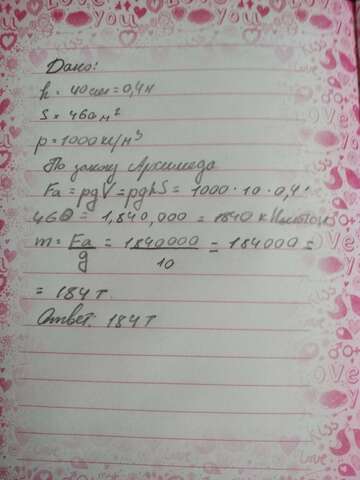 Дано:
h = 40см = 0,4м
S = 460 м²
p = 1000 кг/м³
По закону Архимеда
Fa = pgV = pghS = 1000 · 10 · 0,4 ·
460 = 1,840,000 = 1840 кНьютон
m = Fa/g = 1840000/10 = 184000 =
= 184 т
Ответ: 184 т